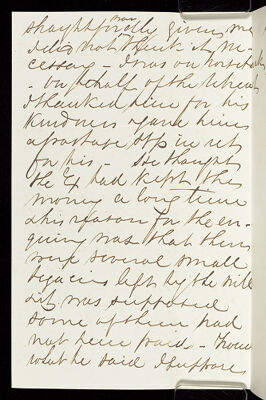 straightforwardly given, me
I did not think it ne-
cessary - I was on horseback
- on behalf of the
I thanked him for his
kindness & gave him
a postage stp in ret
for his - He thought
the Ex had kept the
money a long time
& his reason for the en-
quiry was that there
were several small
legacies left by the will
& it was supposed
some of them had
not been paid - From
what he said I suppose